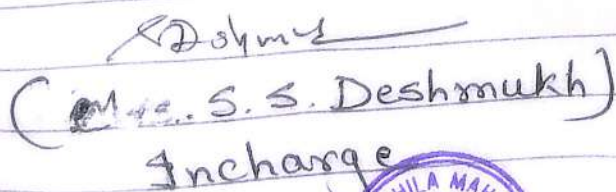 (M... S. S. Deshmukh)
Incharge
HILA MAH